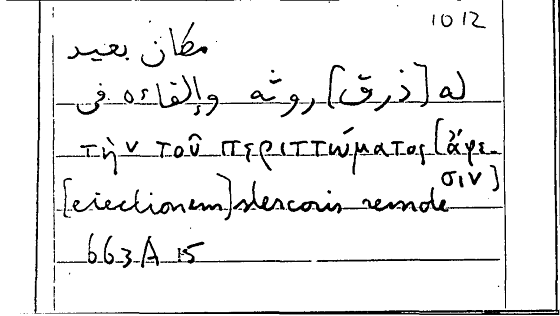 1012
مكان بعيد
له [ذرق] روثه وإلقاءه فى
τὴν τοῦ περιττώματος [ἄφε-
σιν]
[eiectionem] stercoris remote
663 A 15